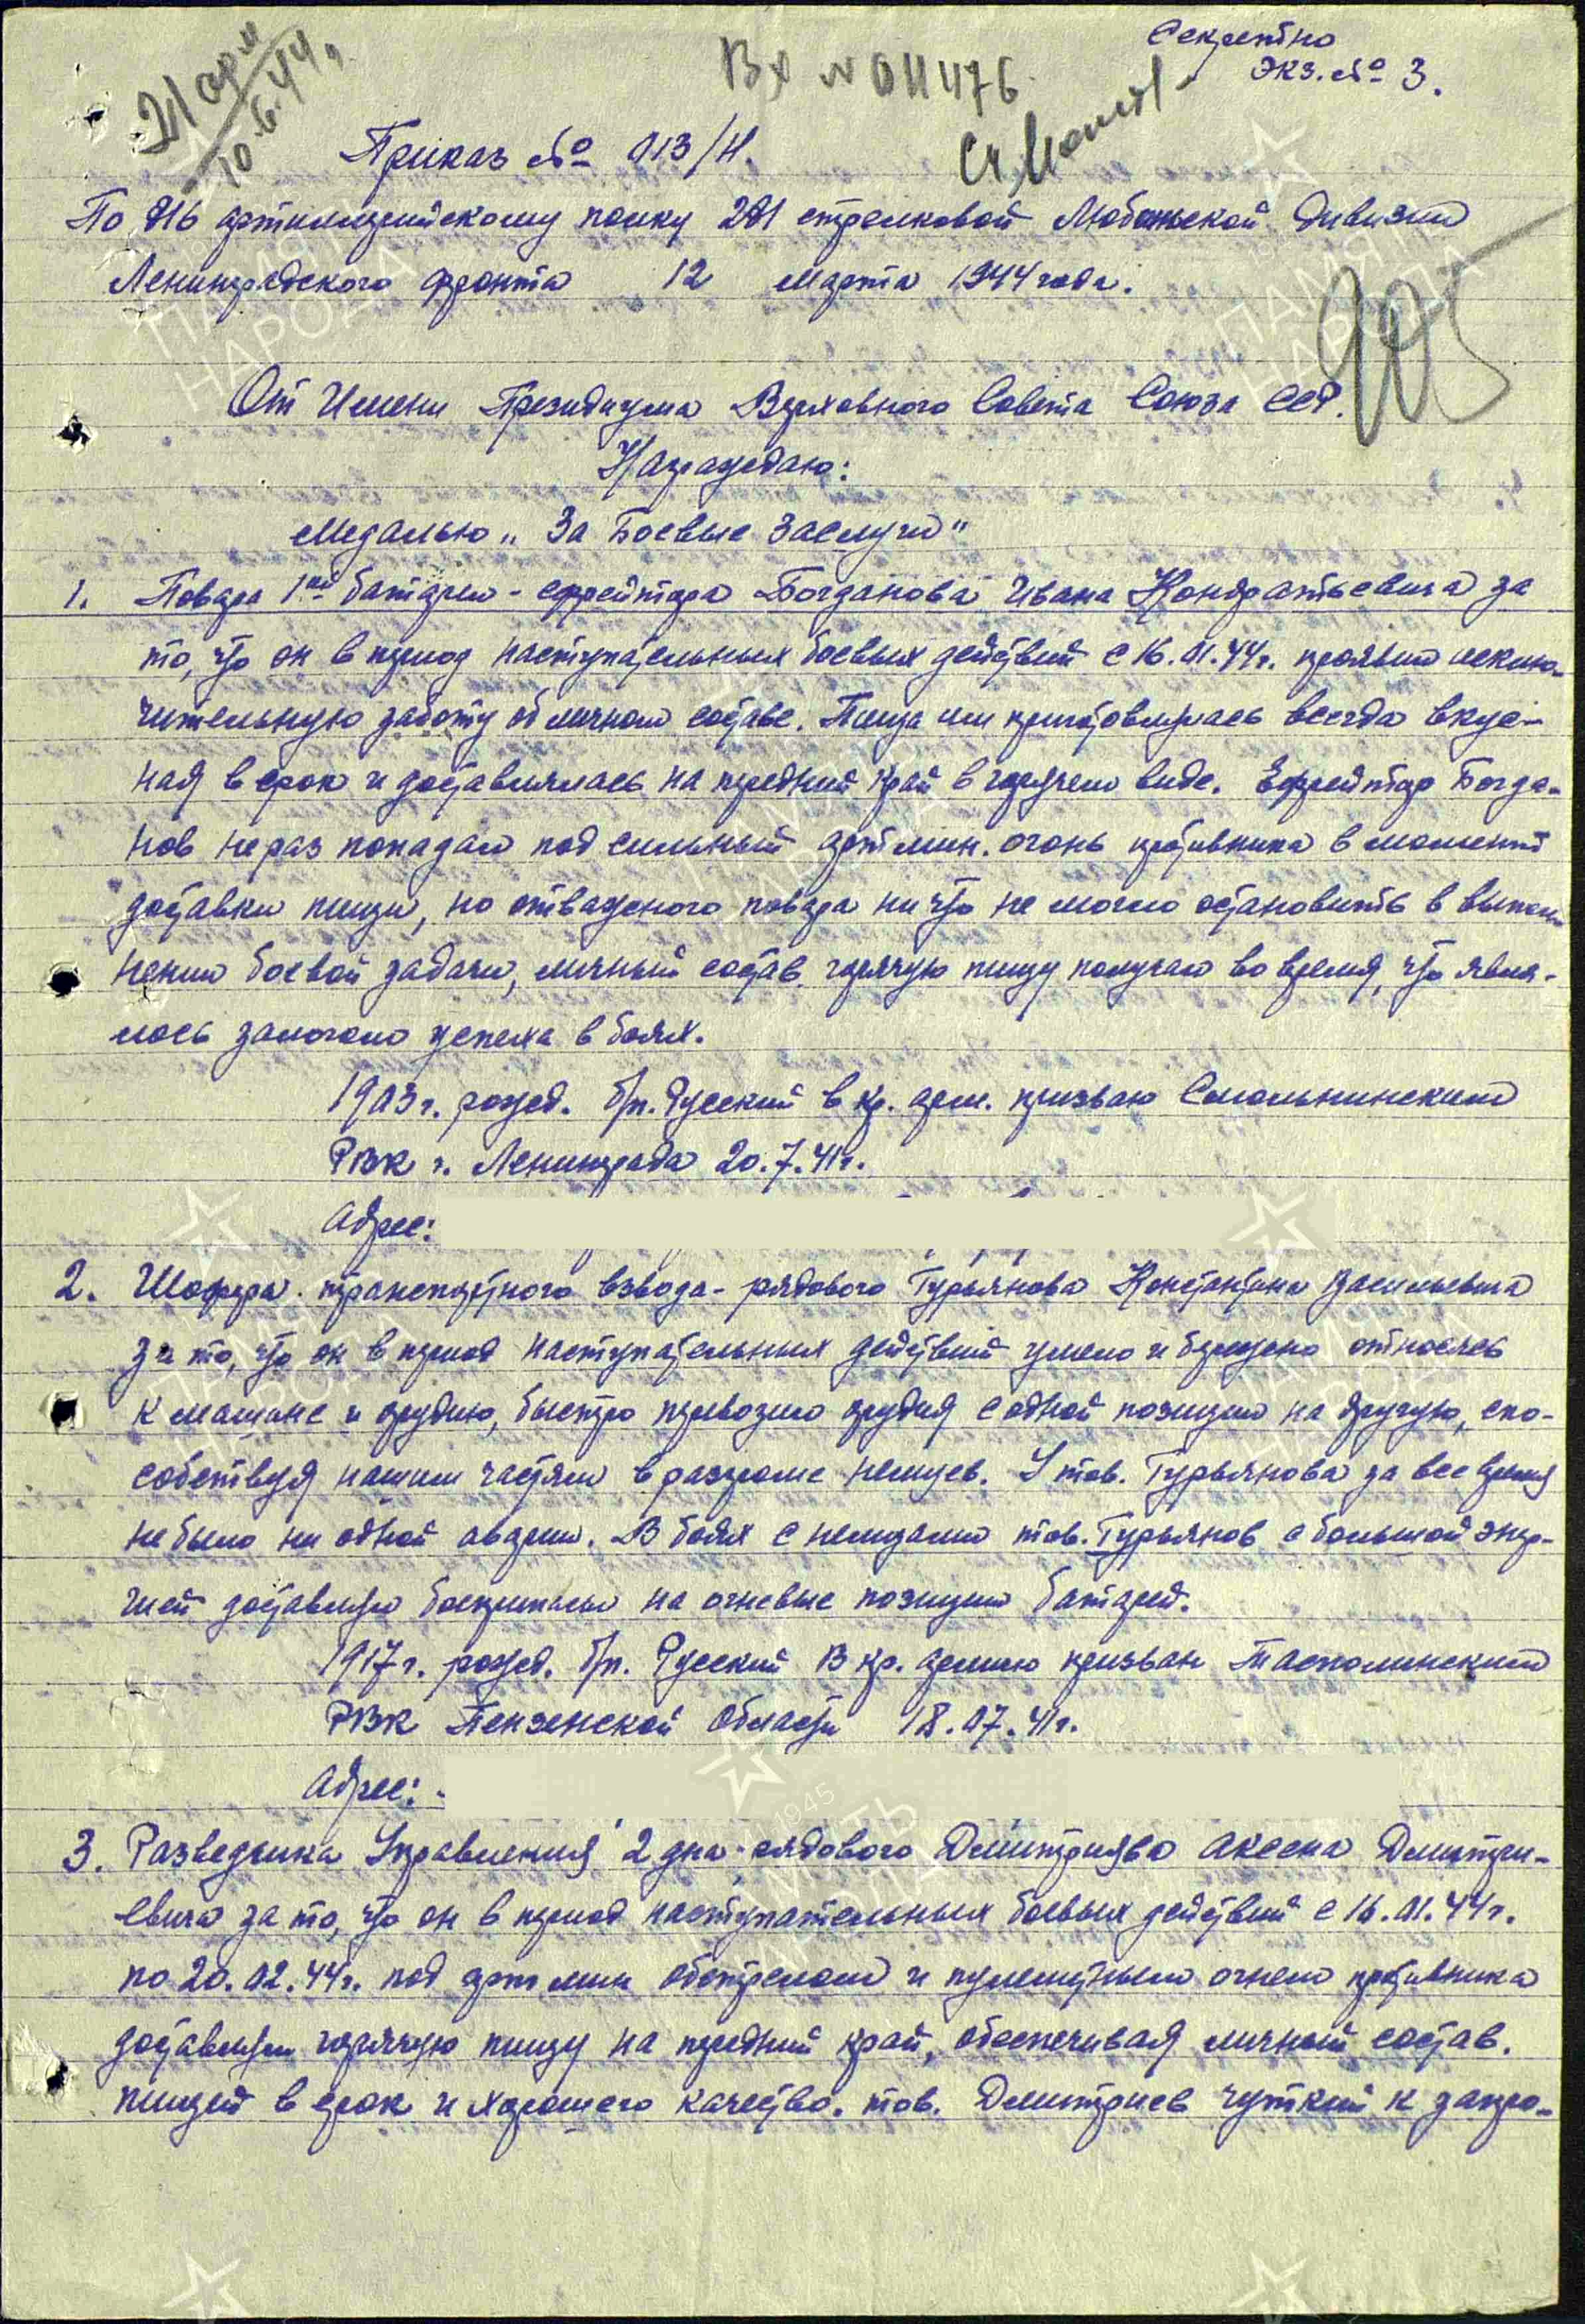 Секретно
Экз. № 3.
Вх N 011476
10.6.44г.
Приказ № 013/Н.
По 816 артиллерийскому полку 281 стрелковой Любаньской дивизии
Ленинградского фронта 12 марта 1944 года.
От Имени Президиума Верховного Совета Союза ССР.
Награждаю:
Медалью „За Боевые Заслуги"
1. Повара 1ой батареи - ефрейтора Богданова Ивана Кондратьевича за
то, что он в период наступательных боевых действий с 16.01.44г. проявил исклю-
чительную заботу об личном составе. Пища им приготовлялась всегда вкус-
ная в срок и доставлялась на передний край в горячем виде. Ефрейтор Богда-
нов не раз попадал под сильный арт мин. огонь противника в момент
доставки пищи, но отважного повара ни что не могло остановить в выпол-
нении боевой задачи, личный состав горячую пищу получал во время, что явля-
лось залогом успеха в боях.
1903г. рожд. б/п. Русский в кр. арм. призван Смольнинским
РВК г. Ленинграда 20.7.41г.
Адрес:
2. Шофера транспортного взвода - рядового Гурьянова Константина Васильевича
за то, что он в период наступательных действий умело и бережно относясь
к машине и орудию, быстро перевозил орудия с одной позиции на другую, спо-
собствуя нашим частям в разгроме немцев. У тов. Гурьянова за все время
не было ни одной аварии. В боях с немцами тов. Гурьянов с большой энер-
гией доставлял боеприпасы на огневые позиции батарей.
1917г. рожд. б/п. Русский В кр. армию призван
РВК Пензенской области 18.07.41г.
Адрес:
3. Разведчика Управления 2 дна - рядового Дмитриева Дмитри-
евича за то, что он в период наступательных боевых действий с 16.01.44г.
по 20.02.44г. под арт мин обстрелом и пулеметным огнем противника
доставлял горячую пищу на передний край, обеспечивая личный состав.
пищей в срок и хорошего качество. тов. Дмитриев чуткий к запро-